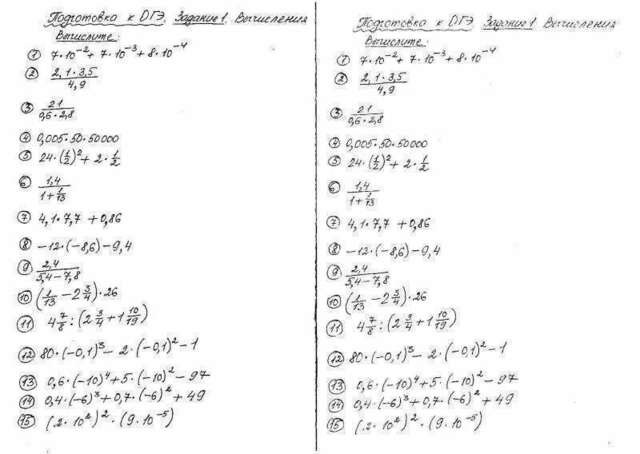 Подготовка к ОГЭ. Задание 1. Вычисления
Вычислите:
① 7·10⁻² + 7·10⁻³ + 8·10⁻⁴
② 2,1·3,5 / 4,9
③ 21 / 0,6·2,8
④ 0,005·50·50000
⑤ 24·(1/2)² + 2·1/2
⑥ 1,4 / 1+1/13
⑦ 4,1·7,7 + 0,86
⑧ −12·(−8,6) − 9,4
⑨ 2,4 / 5,4 − 7,8
⑩ (1/13 − 2 3/4)·26
⑪ 4 7/8 : (2 3/4 + 1 10/19)
⑫ 80·(−0,1)³ − 2·(−0,1)² − 1
⑬ 0,6·(−10)⁴ + 5·(−10)² − 97
⑭ 0,4·(−6)³ + 0,7·(−6)² + 49
⑮ (2·10²)²·(9·10⁻⁵)
Подготовка к ОГЭ. Задание 1. Вычисления
Вычислите:
① 7·10⁻² + 7·10⁻³ + 8·10⁻⁴
② 2,1·3,5 / 4,9
③ 21 / 0,6·2,8
④ 0,005·50·50000
⑤ 24·(1/2)² + 2·1/2
⑥ 1,4 / 1+1/13
⑦ 4,1·7,7 + 0,86
⑧ −12·(−8,6) − 9,4
⑨ 2,4 / 5,4 − 7,8
⑩ (1/13 − 2 3/4)·26
⑪ 4 7/8 : (2 3/4 + 1 10/19)
⑫ 80·(−0,1)³ − 2·(−0,1)² − 1
⑬ 0,6·(−10)⁴ + 5·(−10)² − 97
⑭ 0,4·(−6)³ + 0,7·(−6)² + 49
⑮ (2·10²)²·(9·10⁻⁵)